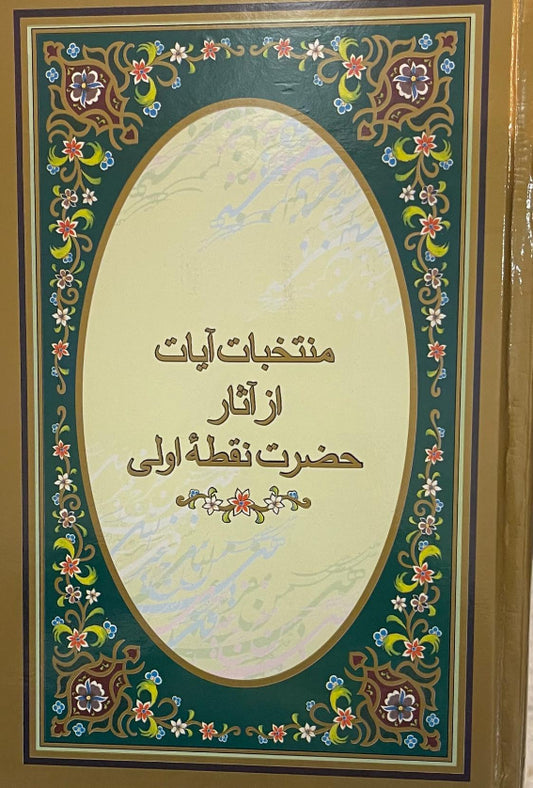 منتخبات آیات
از آثار
حضرت نقطهٔ اولی